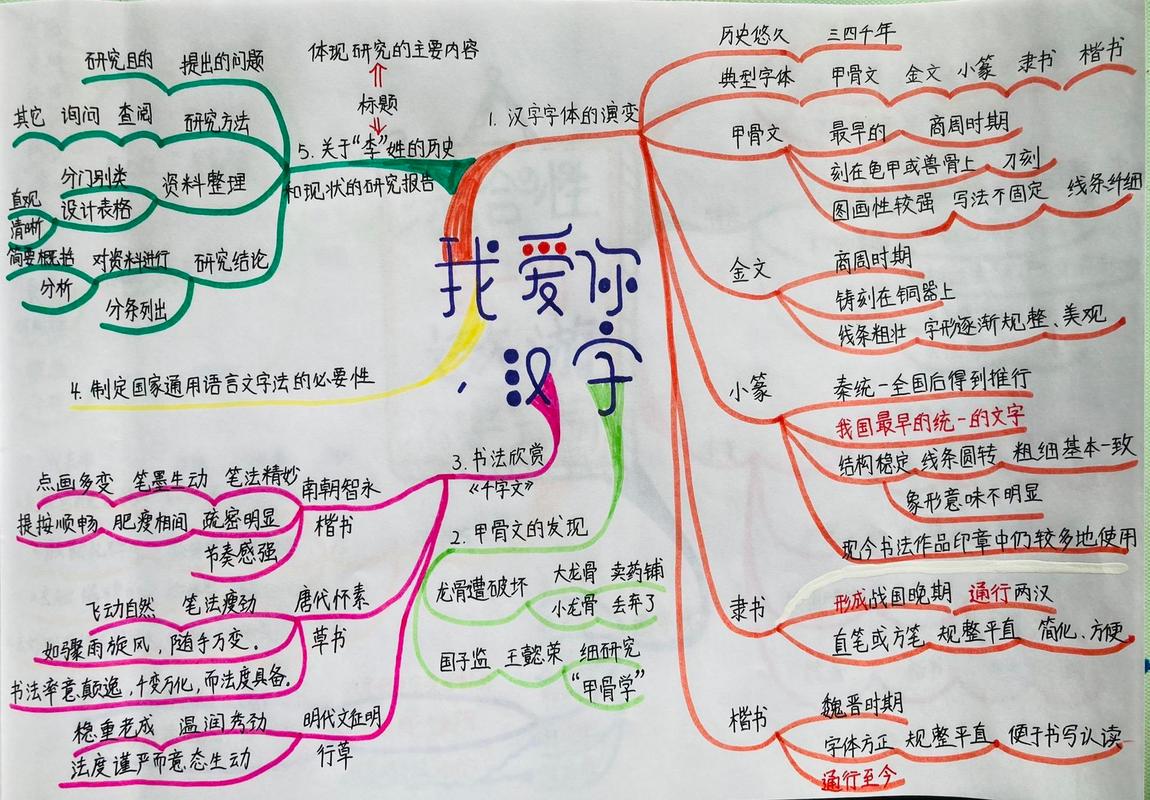 我爱你
汉字
1. 汉字字体的演变
历史悠久 三四千年
典型字体 甲骨文 金文 小篆 隶书 楷书
甲骨文 最早的 商周时期
刻在龟甲或兽骨上 刀刻
图画性较强 写法不固定 线条纤细
金文 商周时期
铸刻在铜器上
线条粗壮 字形逐渐规整、美观
小篆 秦统一全国后得到推行
我国最早的统一的文字
结构稳定 线条圆转 粗细基本一致
象形意味不明显
现今书法作品印章中仍较多地使用
隶书 形成战国晚期 通行两汉
直笔或方笔 规整平直 简化、方便
楷书 魏晋时期
字体方正 规整平直 便于书写认读
通行至今
2. 甲骨文的发现
龙骨遭破坏 大龙骨 卖药铺
小龙骨 丢弃了
国子监 王懿荣 细研究
“甲骨学”
3. 书法欣赏
《千字文》
南朝智永
楷书
点画多变 笔墨生动 笔法精妙
提按顺畅 肥瘦相间 疏密明显
节奏感强
唐代怀素
草书
飞动自然 笔法瘦劲
如骤雨旋风，随手万变。
书法率意颠逸，千变万化，而法度具备。
明代文征明
行草
稳重老成 温润秀劲
法度谨严而意态生动
4. 制定国家通用语言文字法的必要性
5. 关于“李”姓的历史
和现状的研究报告
标题
体现研究的主要内容
研究目的 提出的问题
其它 询问 查阅 研究方法
分门别类 资料整理
直观 设计表格
清晰
简要概括 对资料进行 研究结论
分析
分条列出